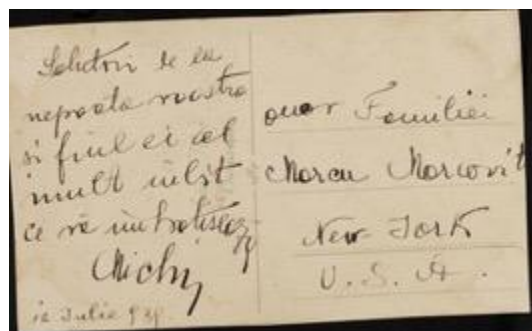 Salutări de la
nepoata voastra
si fiul ei cel
mult iubit
ce vă imbratiseaza
Michy
Iulie 93
Familiei
Marcu Marcovit
New-York
U. S. A.